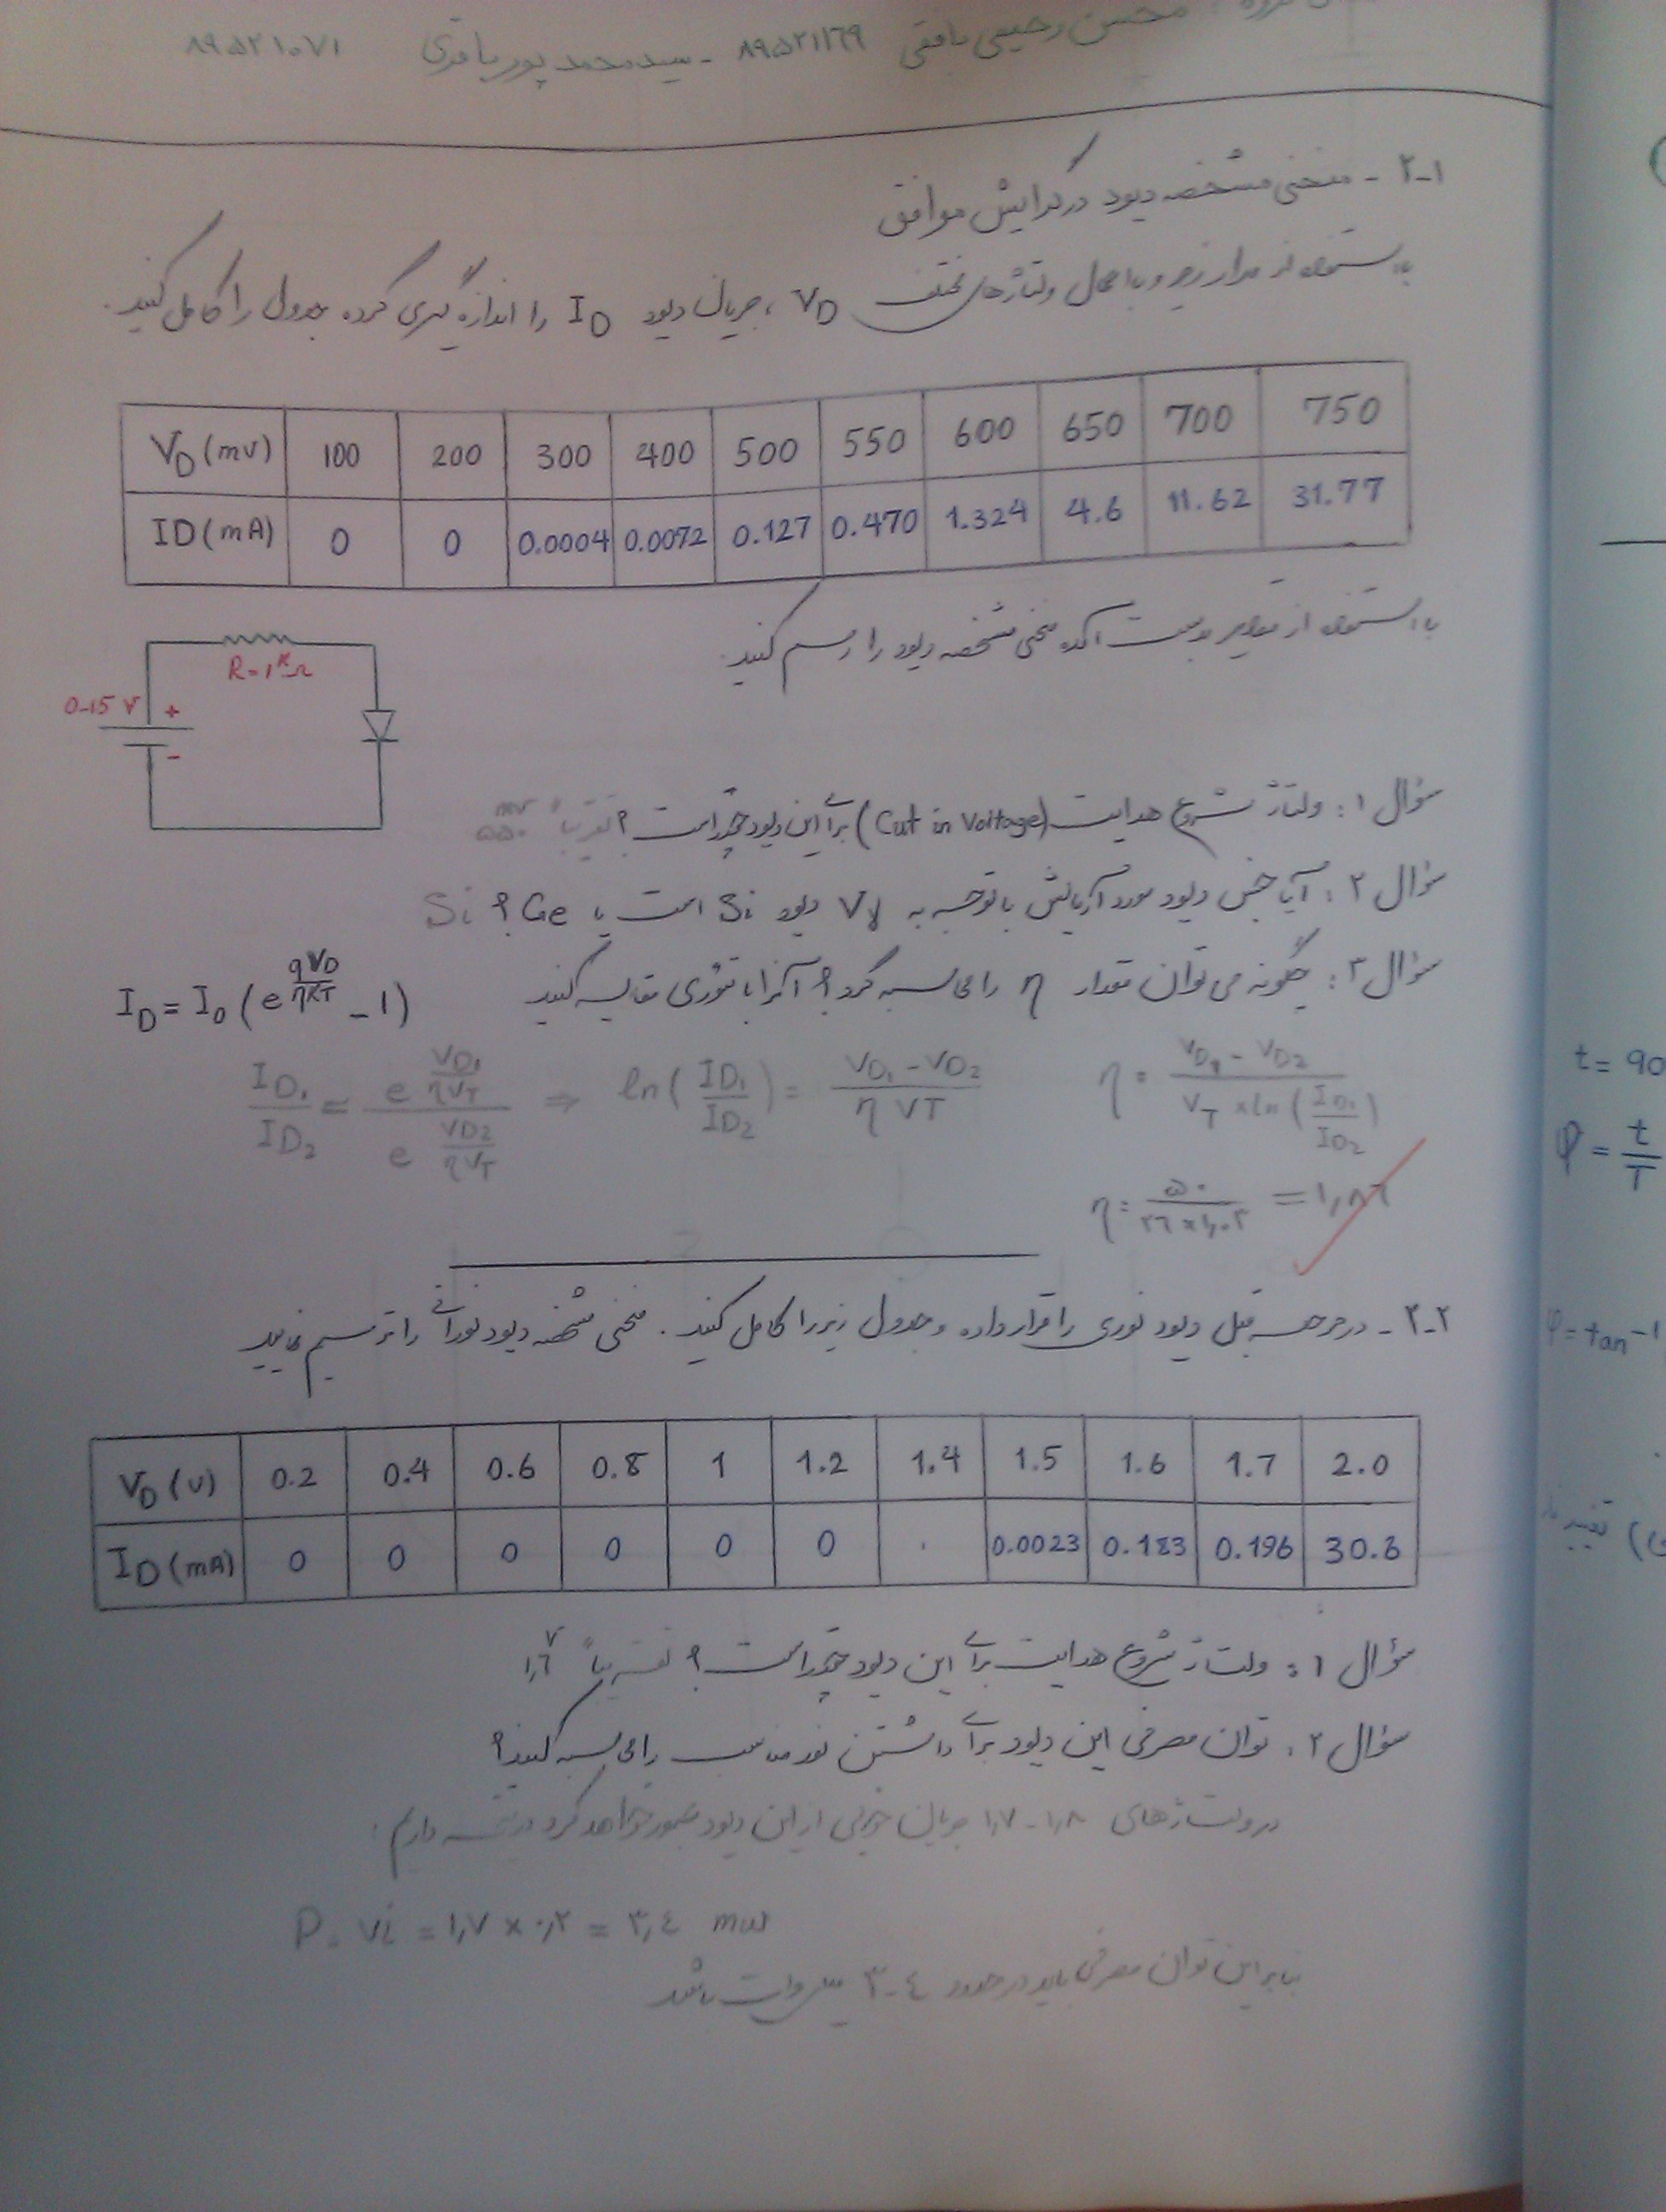 محسن رحیمی بافقی ۸۹۵۲۱۱۲۹ - سیدمحمد پورباقری ۸۹۵۲۱۰۷۱
۲-۱ - منحنی مشخصه دیود در گرایش موافق
با استفاده از مدار زیر و با اعمال ولتاژهای مختلف VD ، جریان دیود ID را اندازه گیری کرده جدول را کامل کنید.
VD (mV) 100 200 300 400 500 550 600 650 700 750
ID (mA) 0 0 0.0004 0.0072 0.127 0.470 1.324 4.6 11.62 31.77
با استفاده از مقادیر بدست آمده منحنی مشخصه دیود را رسم کنید.
R=1KΩ
0-15 V + -
سؤال ۱ : ولتاژ شروع هدایت (Cut in Voltage) برای این دیود چقدر است ؟ تقریباً ۵۵۰ mv
سؤال ۲ : آیا جنس دیود مورد آزمایش با توجه به Vγ دیود Si است یا Ge ؟ Si
سؤال ۳ : چگونه می توان مقدار η را محاسبه کرد ؟ آنرا با تئوری مقایسه کنید
ID = I0 (e^(qVD/ηKT) - 1)
ID1/ID2 = e^(VD1/ηVT) / e^(VD2/ηVT) ⇒ ln(ID1/ID2) = (VD1 - VD2)/(η VT) η = (VD1 - VD2)/(VT × ln(ID1/ID2))
η = ۵۰/(۲۶ × ۱٫۰۳) = ۱٫۸۶
۲-۲ - در مرحله قبل دیود نوری را قرار داده و جدول زیر را کامل کنید . منحنی مشخصه دیود نورانی را ترسیم نمایید
VD (v) 0.2 0.4 0.6 0.8 1 1.2 1.4 1.5 1.6 1.7 2.0
ID (mA) 0 0 0 0 0 0 . 0.0023 0.183 0.196 30.8
سؤال ۱ : ولتاژ شروع هدایت برای این دیود چقدر است ؟ تقریباً ۱٫۶ v
سؤال ۲ : توان مصرفی این دیود برای داشتن نور مناسب را محاسبه کنید؟
در ولتاژهای ۱٫۸ - ۱٫۷ جریان خوبی از این دیود عبور خواهد کرد در نتیجه داریم :
P = vi = ۱٫۷ × ۰٫۲ = ۳٫٤ mw
بنابراین توان مصرفی باید در حدود ٤-۳ میلی وات باشد
t = 90
φ = t/T
φ = tan⁻¹